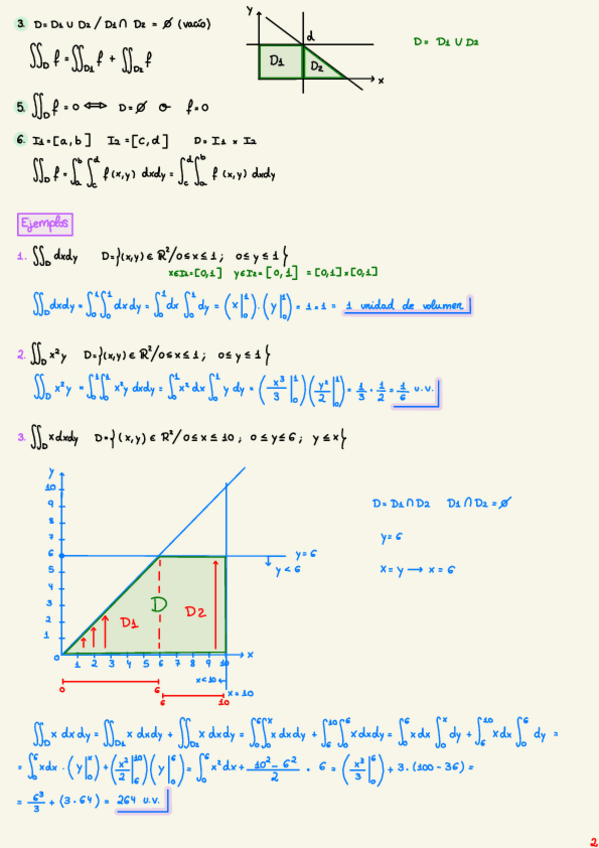 3. D = D1 ∪ D2 / D1 ∩ D2 = ∅ (vacío)
∬_D f = ∬_D1 f + ∬_D2 f
y
d
D1
D2
x
D = D1 ∪ D2
5. ∬_D f = 0 ⟺ D = ∅ o f = 0
6. I1 = [a,b] I2 = [c,d] D = I1 × I2
∬_D f = ∫_a^b ∫_c^d f(x,y) dxdy = ∫_c^d ∫_a^b f(x,y) dxdy
Ejemplos
1. ∬_D dxdy D = {(x,y) ∈ R²/0≤x≤1; 0≤y≤1}
x∈I1=[0,1] y∈I2=[0,1] = [0,1]x[0,1]
∬_D dxdy = ∫_0^1 ∫_0^1 dxdy = ∫_0^1 dx ∫_0^1 dy = (x|_0^1)·(y|_0^1) = 1·1 = 1 unidad de volumen
2. ∬_D x²y D = {(x,y) ∈ R²/0≤x≤1; 0≤y≤1}
∬_D x²y = ∫_0^1 ∫_0^1 x²y dxdy = ∫_0^1 x² dx ∫_0^1 y dy = (x³/3|_0^1)(y²/2|_0^1) = 1/3 · 1/2 = 1/6 u.v.
3. ∬_D xdxdy D = {(x,y) ∈ R²/0≤x≤10; 0≤y≤6; y≤x}
y
10
9
8
7
6
5
4
3
2
1
0
1 2 3 4 5 6 7 8 9 10 x
y=6
y<6
D
D1
D2
x<10
x=10
0 6
6 10
D = D1 ∩ D2 D1 ∩ D2 = ∅
y=6
x=y → x=6
∬_D x dxdy = ∬_D1 x dxdy + ∬_D2 x dxdy = ∫_0^6 ∫_0^x x dxdy + ∫_6^10 ∫_0^6 x dxdy = ∫_0^6 x dx ∫_0^x dy + ∫_6^10 x dx ∫_0^6 dy =
= ∫_0^6 x dx · (y|_0^x) + (x²/2|_6^10)(y|_0^6) = ∫_0^6 x² dx + (10² − 6²)/2 · 6 = (x³/3|_0^6) + 3·(100−36) =
= 6³/3 + (3·64) = 264 u.v.
2